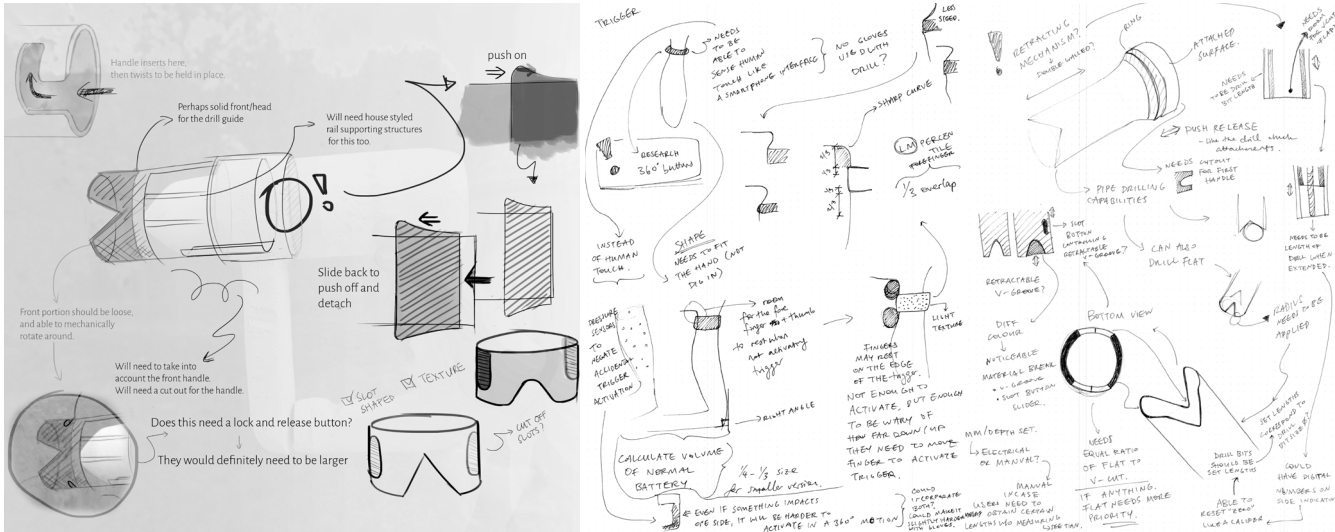 Handle inserts here,
then twists to be held in place.
Perhaps solid front/head
for the drill guide
Will need house styled
rail supporting structures
for this too.
push on
Slide back to
push off and
detach
Front portion should be loose,
and able to mechanically
rotate around.
Will need to take into
account the front handle.
Will need a cut out for the handle.
Does this need a lock and release button?
They would definitely need to be larger
SLOT
SHAPED
TEXTURE
CUT OFF
SLOTS?
TRIGGER
NEEDS
TO BE
ABLE TO
SENSE HUMAN
TOUCH LIKE
A SMARTPHONE INTERFACE
NO GLOVES
USED WITH
DRILL?
RESEARCH
360° button
INSTEAD
OF HUMAN
TOUCH.
SHAPE
NEEDS TO FIT
THE HAND (NOT
DIG IN)
LESS
SHARP CURVE
LM PERCEN
TILE
FOREFINGER
1/3 overlap
PRESSURE
SENSORS
TO
NEGATE
ACCIDENTAL
TRIGGER
ACTIVATION
room
for the fore
finger + thumb
to rest when
not activating
trigger
RIGHT ANGLE
LIGHT
TEXTURE
FINGERS
MAY REST
ON THE EDGE
OF THE trigger.
NOT ENOUGH TO
ACTIVATE, BUT ENOUGH
TO BE WARY OF
HOW FAR DOWN/UP
THEY NEED TO MOVE
FINGER TO ACTIVATE
TRIGGER.
CALCULATE VOLUME
OF NORMAL
BATTERY
1/4 - 1/3 size
for smaller version.
EVEN IF SOMETHING IMPACTS
ONE SIDE, IT WILL BE HARDER TO
ACTIVATE IN A 360° MOTION
COULD
INCORPORATE
BOTH?
COULD MAKE IT
SLIGHTLY HARDER
WITH GLOVES.
RETRACTING
MECHANISM?
DOUBLE WALLED?
RING
ATTACHED
SURFACE.
NEEDS
TO BE DRILL
BIT LENGTH
NEEDS
ROOM
FOR V CUT
PUSH RELEASE
- like the drill chuck
attachments.
NEEDS CUTOUT
FOR FIRST
HANDLE
PIPE DRILLING
CAPABILITIES
SLOT
BUTTON
CONTAINING
RETRACTABLE
V-GROOVE?
RETRACTABLE
V-GROOVE?
CAN ALSO
DRILL FLAT
NEEDS TO BE
LENGTH OF
DRILL WHEN
EXTENDED.
DIFF
COLOUR
NOTICEABLE
MATERIAL BREAK
• V-GROOVE
• SLOT BUTTON
SLIDER.
BOTTOM VIEW
RADIUS
NEEDS TO BE
APPLIED
MM/DEPTH SET.
ELECTRICAL
OR MANUAL?
MANUAL
INCASE
USERS NEED TO
OBTAIN CERTAIN
LENGTHS W/O MEASURING
NEEDS
EQUAL RATIO
OF FLAT TO
V-CUT.
IF ANYTHING.
FLAT NEEDS MORE
PRIORITY.
SET LENGTHS
CORRESPOND TO
DRILL
BIT SIZES?
DRILL BITS
SHOULD BE
SET LENGTHS
ABLE TO
RESET "ZERO"
LIKE A CALIPER.
COULD
HAVE DIGITAL
NUMBERS ON
SIDE INDICATOR